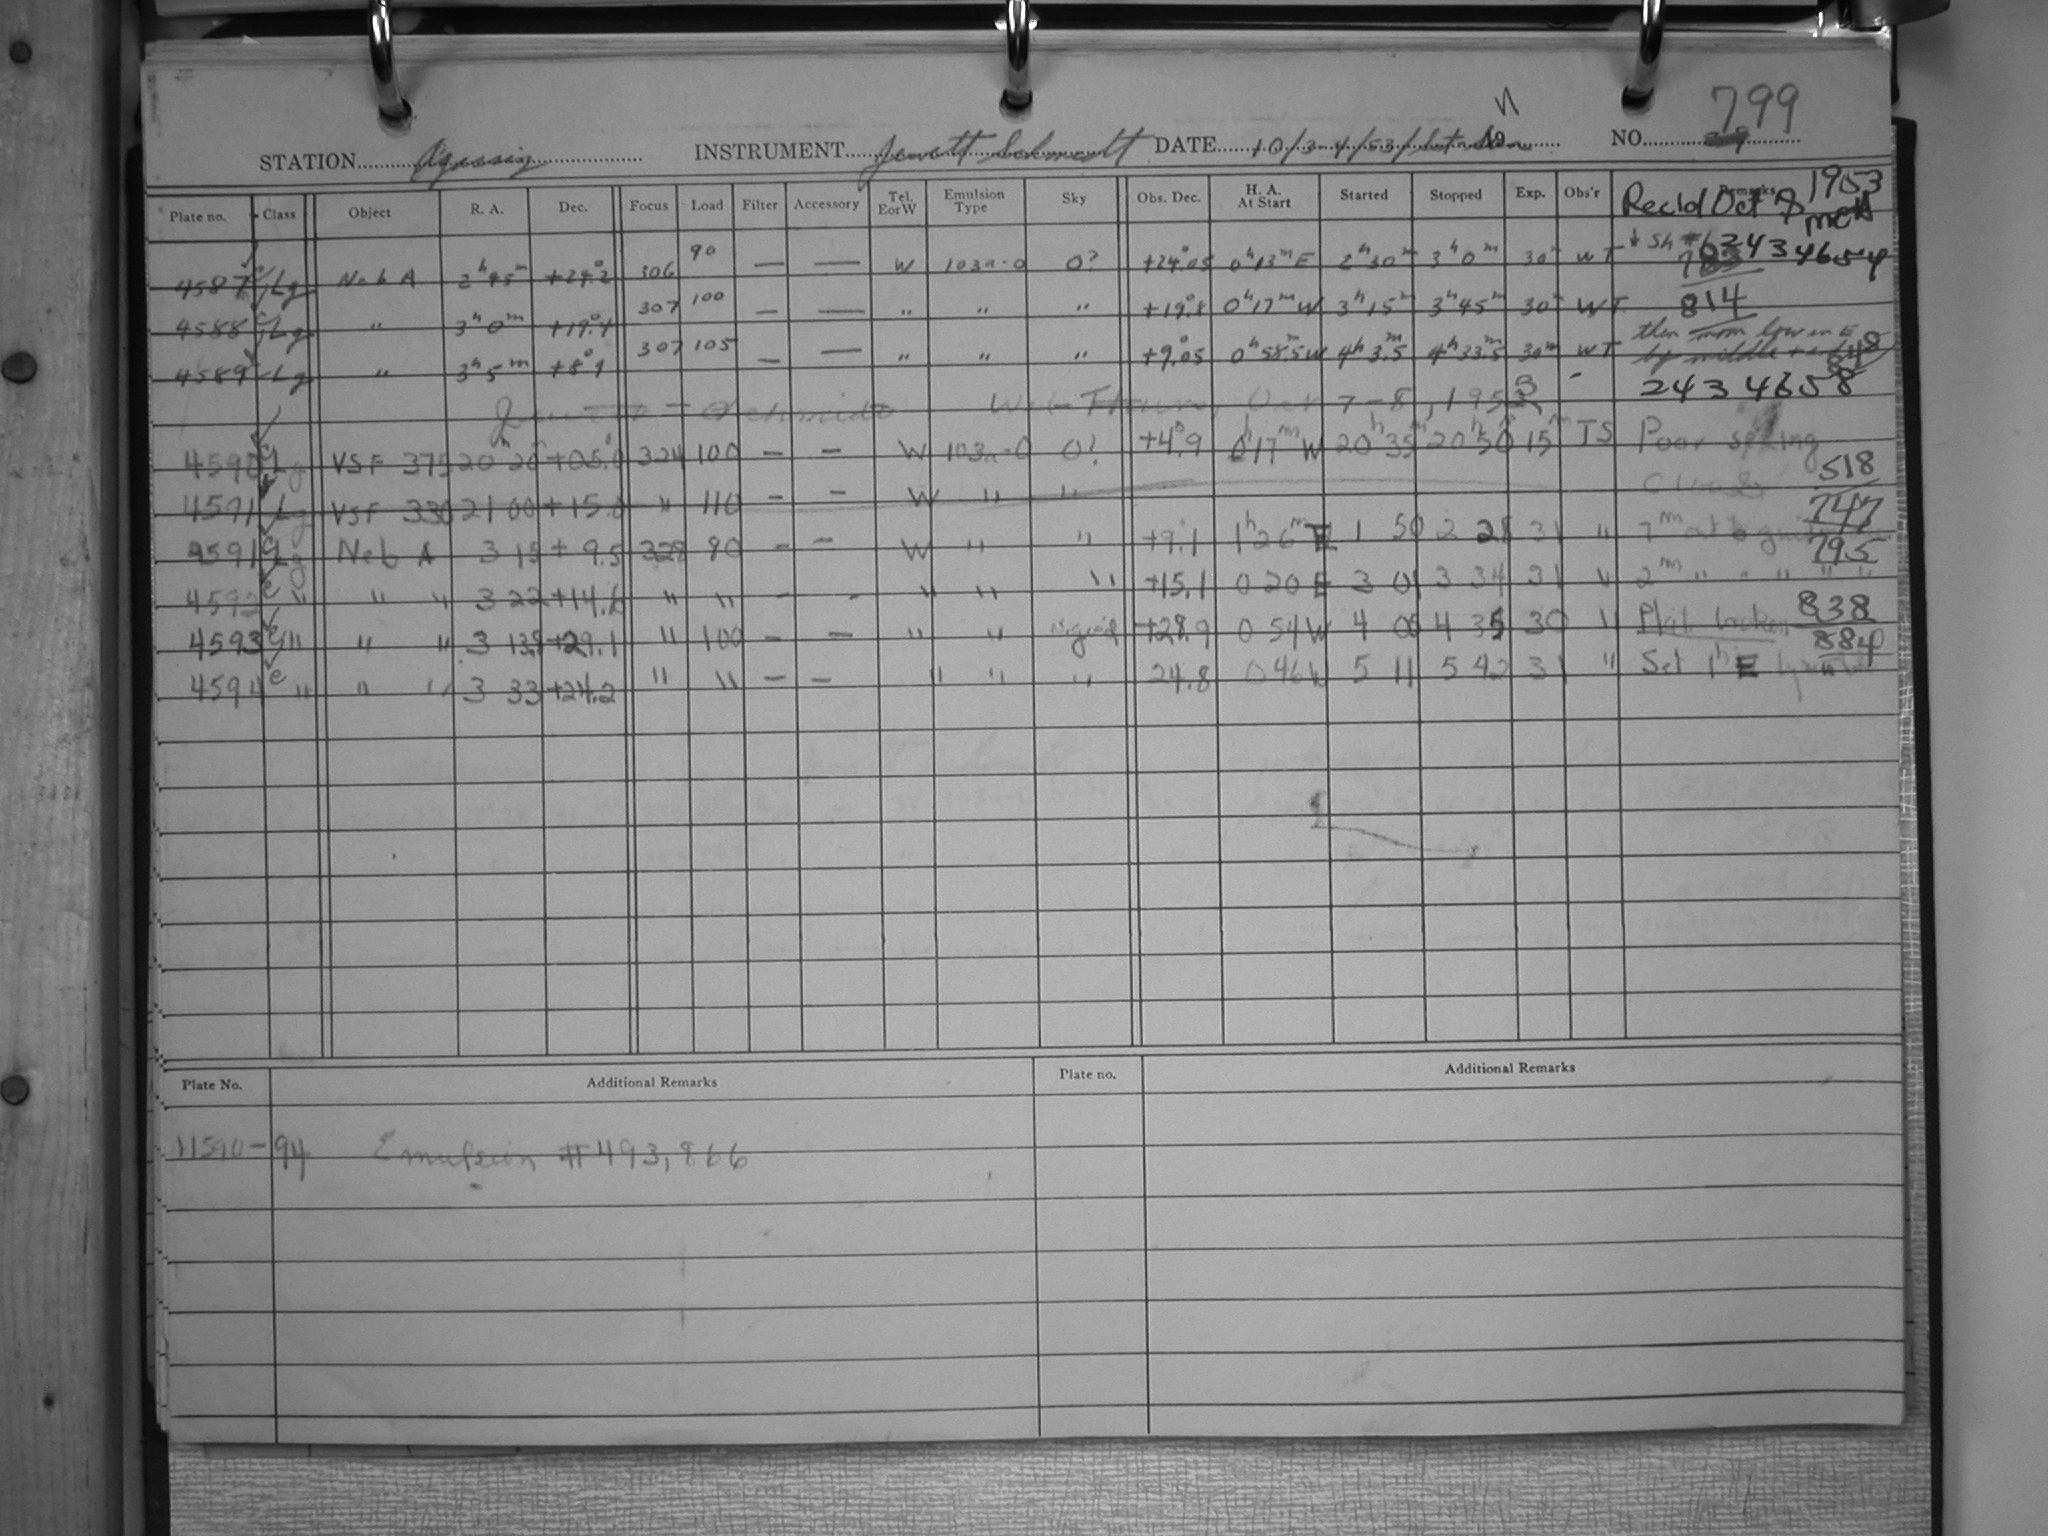 N 799
STATION Agassiz INSTRUMENT Jewett Schmidt DATE 10/3-4/53 19 NO.
Plate no. Class Object R. A. Dec. Focus Load Filter Accessory Tel. EorW Emulsion Type Sky Obs. Dec. H. A. At Start Started Stopped Exp. Obs'r Remarks
Rec'd Oct 8 1953
4587 Lg Neb A 2h 45m +24°.2 306 90 — — W 103a-O 0? +24°.05 0h 13m E 2h 30m 3h 0m 30m WT 2434654
4588 Lg " 3h 0m +19°.4 307 100 — — " " " +19°.8 0h 17m W 3h 15m 3h 45m 30m WT 814
4589 Lg " 3h 5m 307 105 — — " " " +9°.05 0h 58.5 W 4h 3m.5 4h 33m.5 30m WT
Jewett - Schmidt Wed-Thurs, Oct 7-8, 1953 2434658
4590 Lg VSF 375 20h 20 +05.0 324 100 — — W 103a-O 0? +4°.9 0h 17m W 20h 35m 20h 50m 15m JS Poor
4591 Lg VSF 330 21 00 +15.0 " 110 — — W " " Clouds 518
4591 Lg Neb A 3 15 + 9.5 328 90 — — W " " +9°.1 1h 26m E 1 50 2 21 31 " 7m out 747
4592 " " " 3 22 +14.6 " " — — " " " +15.1 0 20 E 3 01 3 34 31 " 2m " " " " 795
4593 " " " +29.1 " 100 — — " " +28.9 0 54 W 4 05 4 35 30 " Plate broken 838
4594 " " " 3 33 +24.2 " " — — " " " 24.8 0 46 W 5 11 5 42 31 " Set 1h E 884
Plate No. Additional Remarks Plate no. Additional Remarks
4590-94 Emulsion #493,866